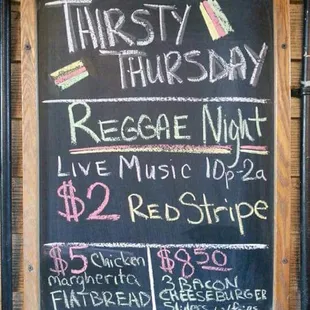 THIRSTY
THURSDAY
REGGAE Night
LIVE MUSIC 10p-2a
$2 RED STRIPE
$5 Chicken
margherita
FLATBREAD
$8.50
3 BACON
CHEESEBURGER
Sliders w/fries